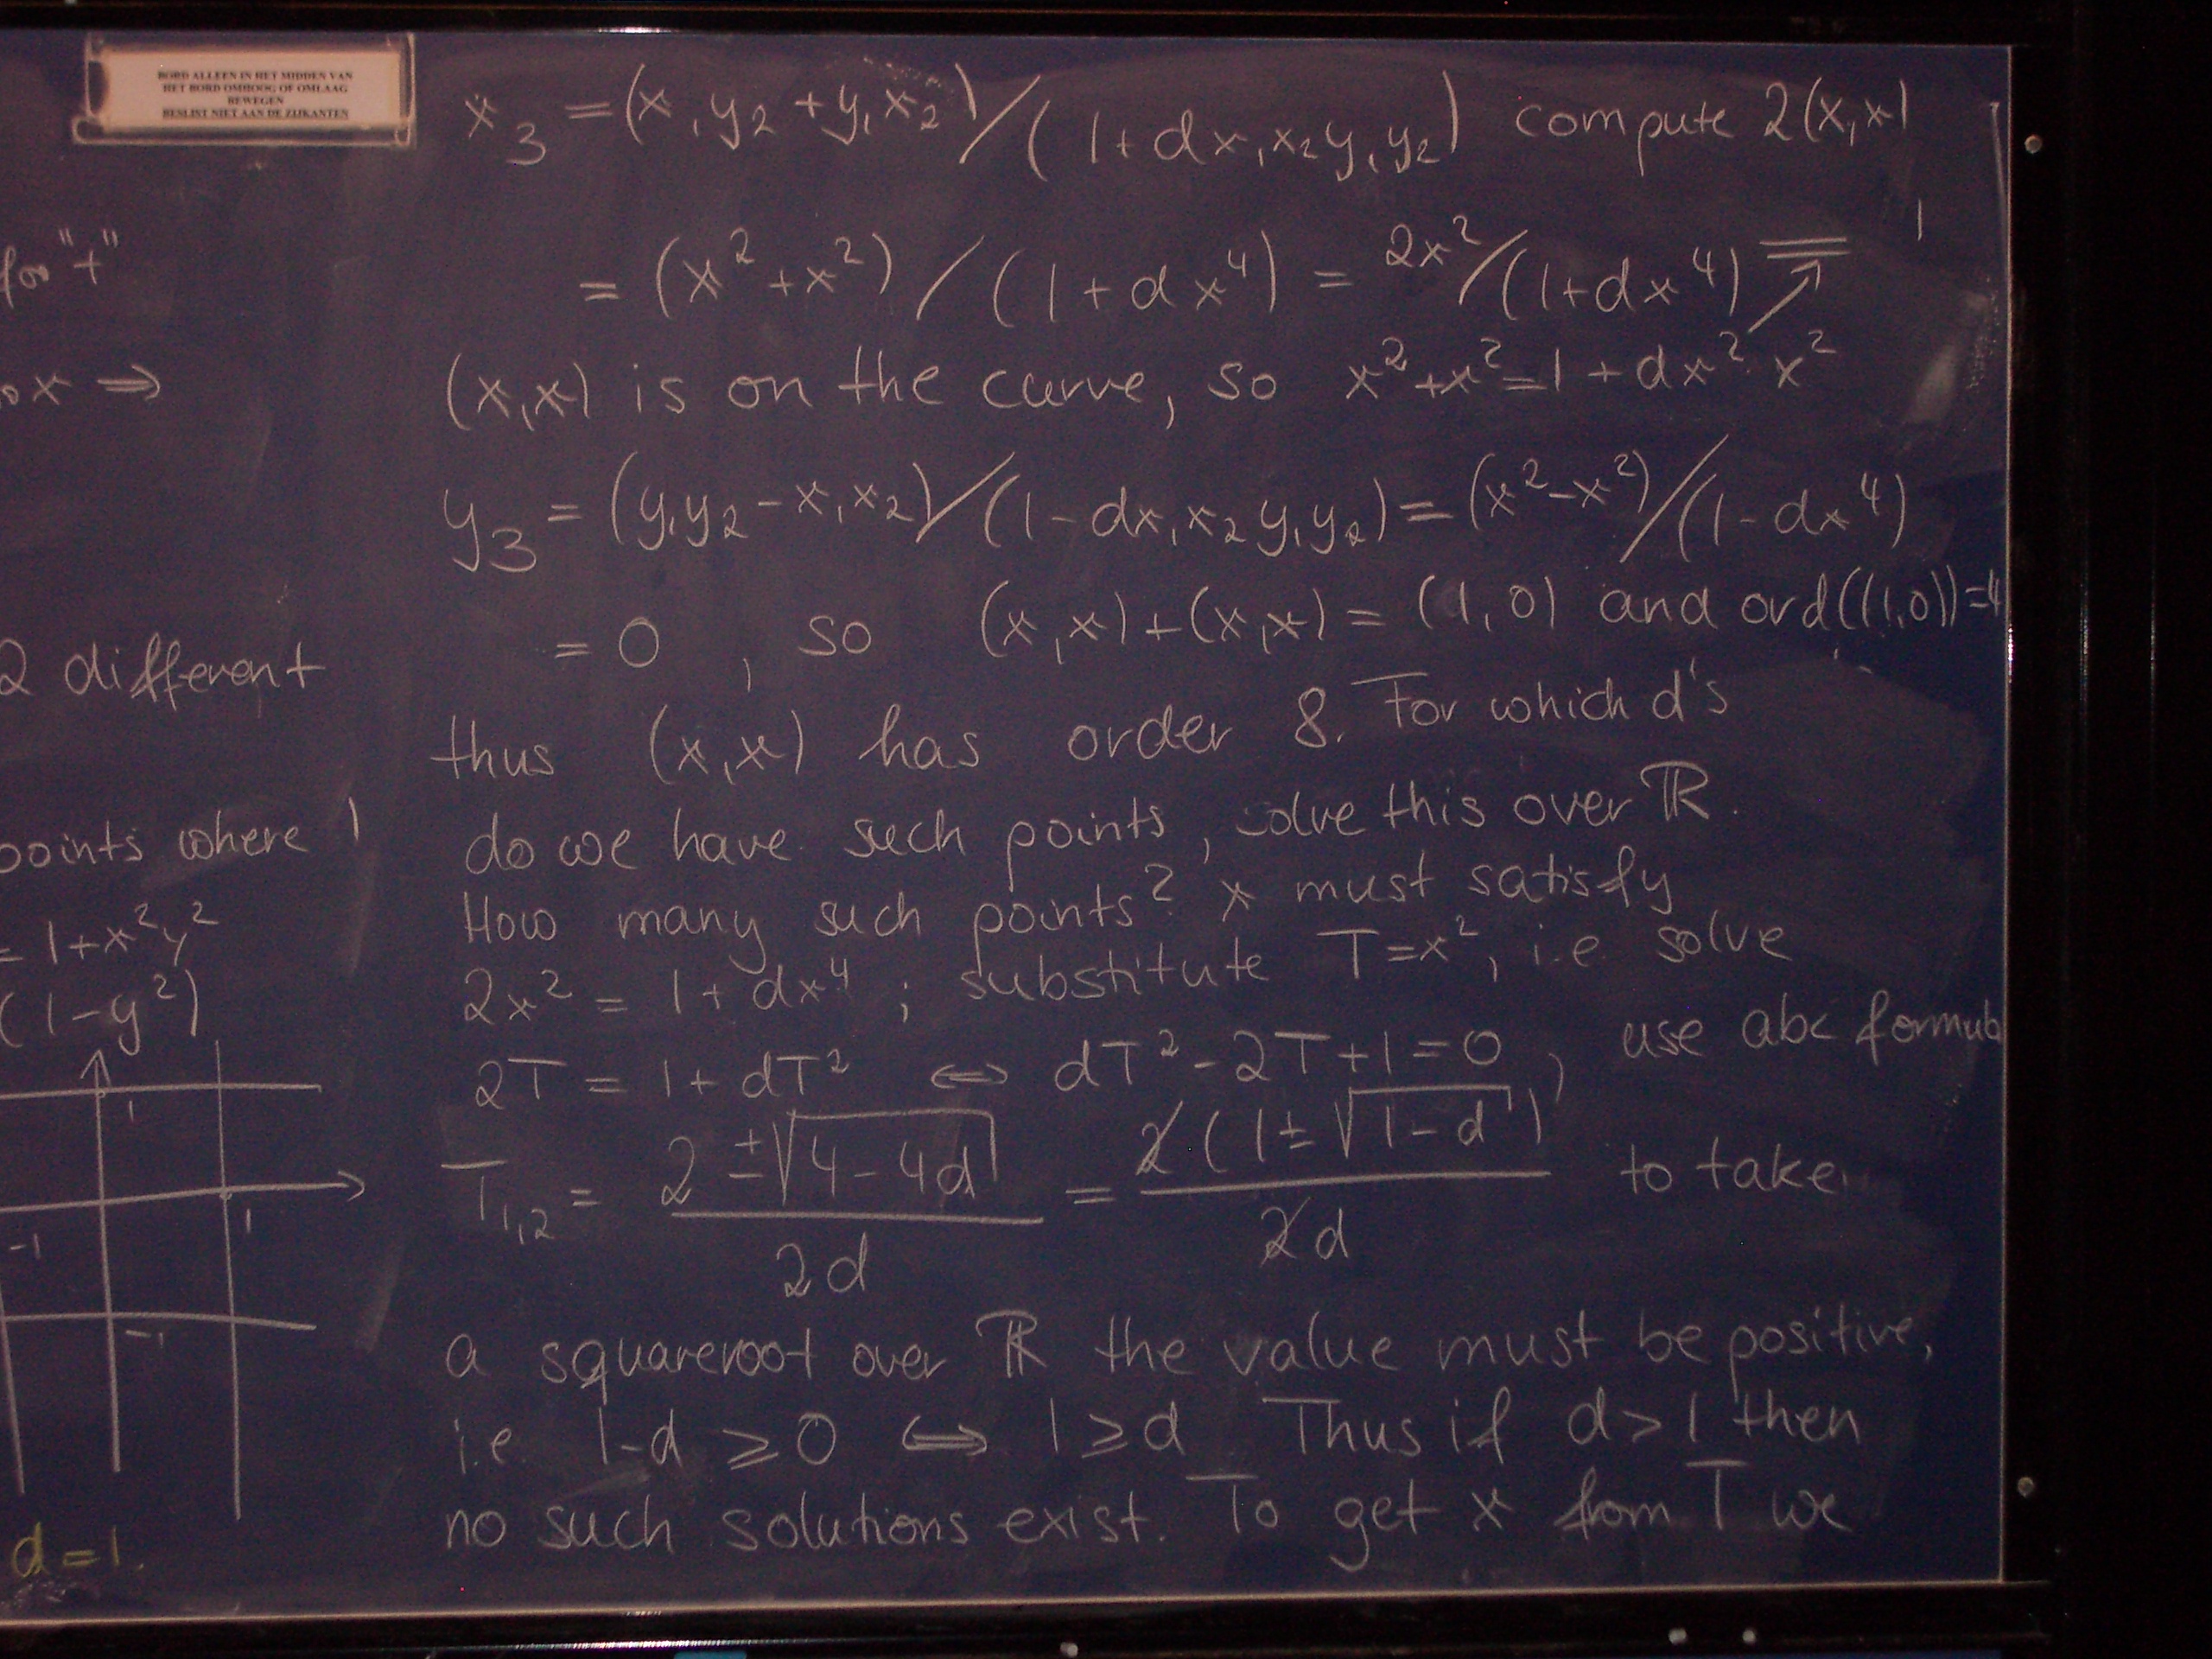 BORD ALLEEN IN HET MIDDEN VAN
HET BORD OMHOOG OF OMLAAG
BEWEGEN
BESLIST NIET AAN DE ZIJKANTEN
for "+"
x ⇒
2 different
points where
= 1+x²y²
(1-y²)
1
1
-1
-1
d=1.
x₃ = (x₁y₂+y₁x₂)/(1+dx₁x₂y₁y₂) compute 2(x,x)
= (x²+x²)/(1+dx⁴) = 2x²/(1+dx⁴) = 1
(x,x) is on the curve, so x²+x²=1+dx²·x²
y₃ = (y₁y₂-x₁x₂)/(1-dx₁x₂y₁y₂) = (x²-x²)/(1-dx⁴)
= 0 , so (x,x)+(x,x) = (1,0) and ord((1,0))=4
thus (x,x) has order 8. For which d's
do we have such points, solve this over ℝ.
How many such points? x must satisfy
2x² = 1+dx⁴ ; substitute T=x², i.e. solve
2T = 1+dT² ⇔ dT²-2T+1=0, use abc formula
T₁,₂ = (2±√(4-4d))/2d = 2(1±√(1-d))/2d to take
a squareroot over ℝ the value must be positive,
i.e. 1-d ≥ 0 ⇔ 1≥d Thus if d>1 then
no such solutions exist. To get x from T we